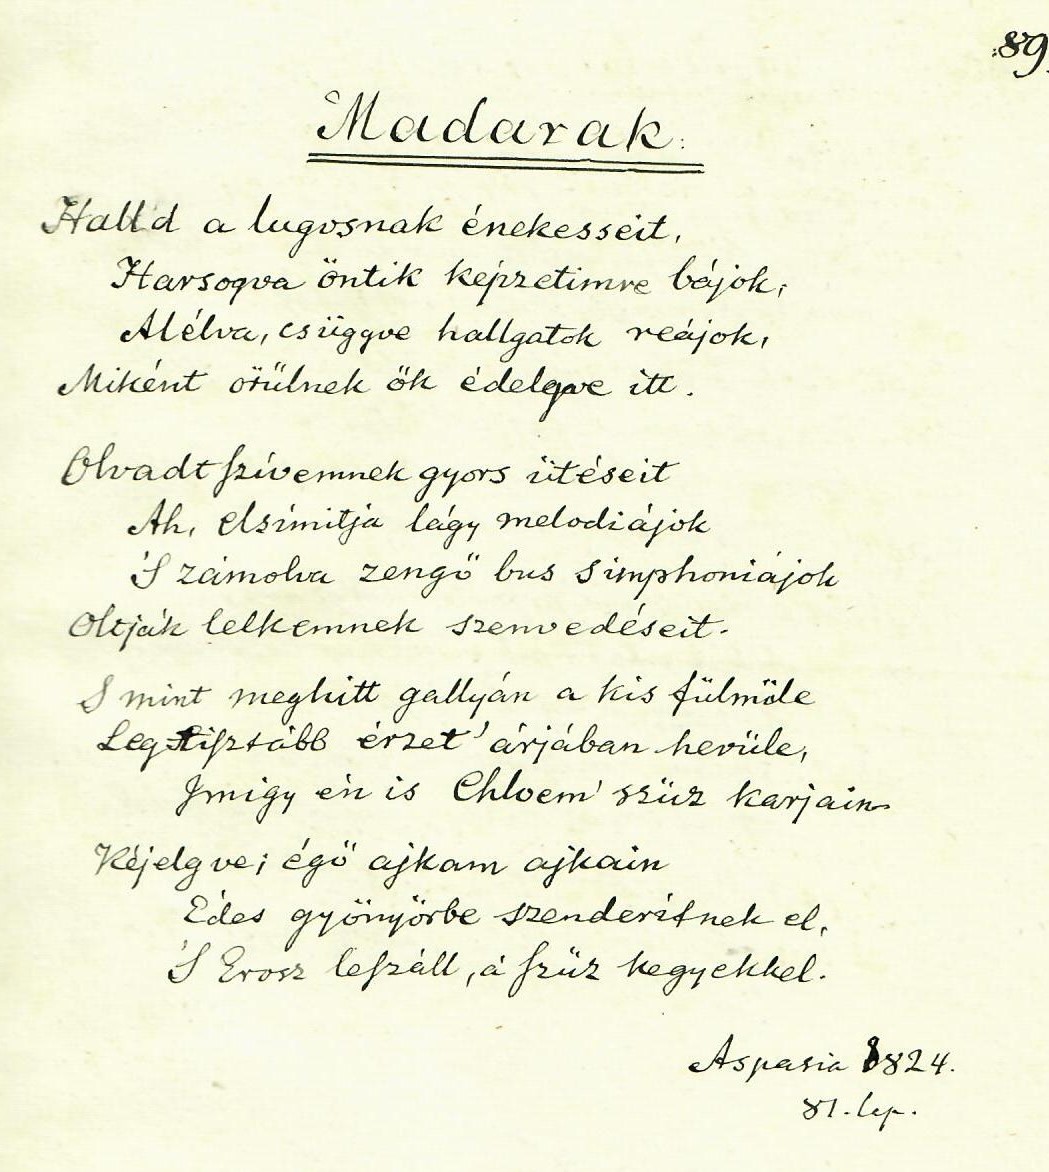 89.
Madarak.
Halld a lugosnak énekesseit,
Harsogva öntik képzetimre bájok;
Alélva, csüggve hallgatok reájok,
Miként örülnek ők édelgve itt.
Olvadt szívemnek gyors ütéseit
Ah, elsimitja lágy melodiájok
'S zámolva zengő bus simphoniájok
Oltják lelkemnek szenvedéseit.
S mint meghitt gallyán a kis fülmüle
Legtisztább érzet' árjában hevüle,
Imigy én is Chloem' szüz karjain
Kéjelgve; égő ajkam ajkain
Édes gyönyörbe szenderítnek el,
'S Erosz leszáll, á szüz kegyekkel.
Aspasia 1824.
81. lap.